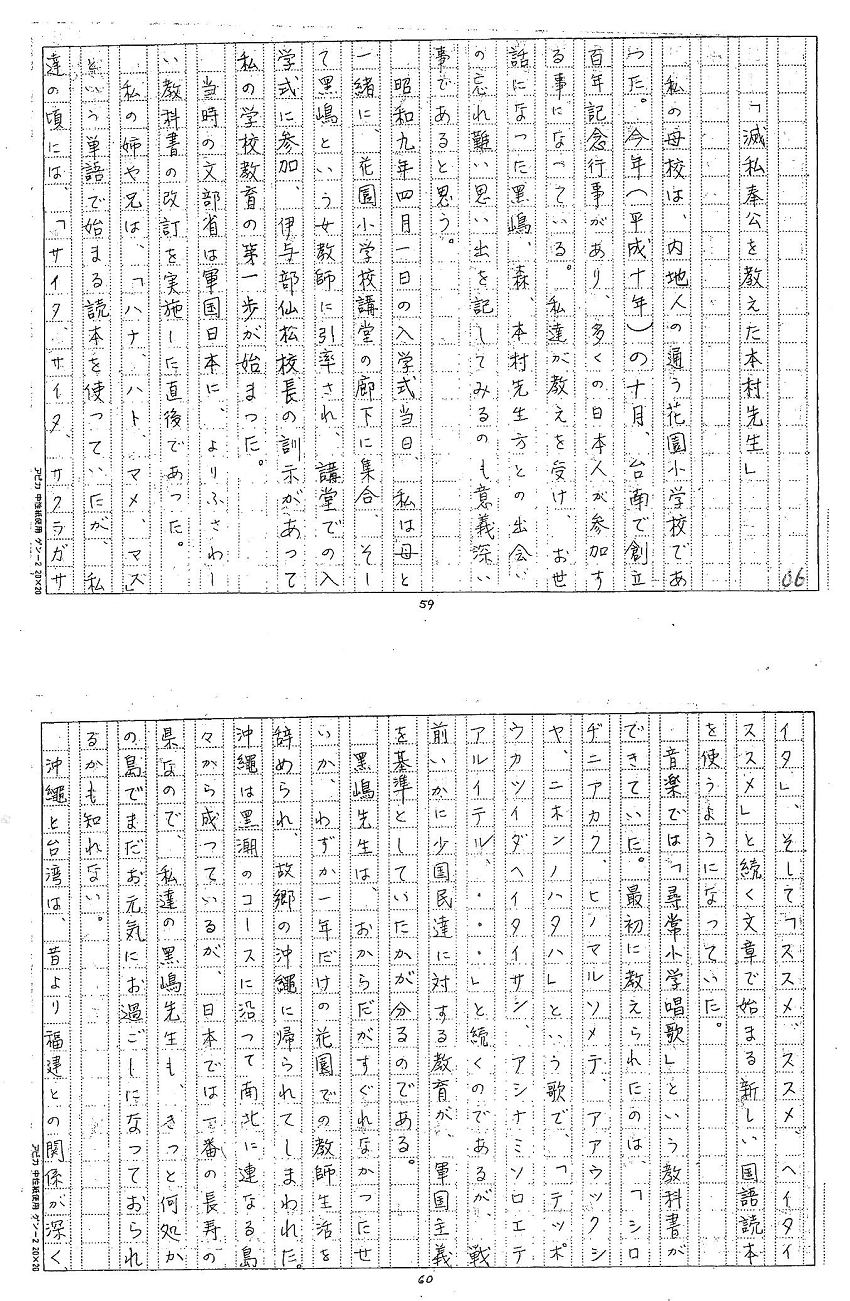 06
「滅私奉公を教えた本村先生」
私の母校は、内地人の通う花園小学校であ
った。今年(平成十年)の十月、台南で創立
百年記念行事があり、多くの日本人が参加す
る事になっている。私達が教えを受け、お世
話になった黒嶋、森、本村先生方との出会い
の忘れ難い思い出を記してみるのも意義深い
事であると思う。
昭和九年四月一日の入学式当日、私は母と
一緒に、花園小学校講堂の廊下に集合、そし
て黒嶋という女教師に引率され、講堂での入
学式に参加、伊与部仙松校長の訓示があって
私の学校教育の第一歩が始まった。
当時の文部省は軍国日本に、よりふさわし
い教科書の改訂を実施した直後であった。
私の姉や兄は、「ハナ、ハト、マメ、マス」
という単語で始まる読本を使っていたが、私
達の頃には、「サイタ、サイタ、サクラガサ
アピカ 中性紙使用 ゲンー2 20×20
59
イタ」、そして「ススメ、ススメ、ヘイタイ
ススメ」と続く文章で始まる新しい国語読本
を使うようになっていた。
音楽では「尋常小学唱歌」という教科書が
できていた。最初に教えられたのは、「シロ
ヂニアカク、ヒノマルソメテ、アアウツクシ
ヤ、ニホンノハタハ」という歌で、「テッポ
ウカツイダヘイタイサン、アシナミソロエテ
アルイテル、・・・」と続くのであるが、戦
前いかに少国民達に対する教育が、軍国主義
を基準としていたかが分るのである。
黒嶋先生は、おからだがすぐれなかったせ
いか、わずか一年だけの花園での教師生活を
辞められ、故郷の沖縄に帰られてしまわれた。
沖縄は黒潮のコースに沿って南北に連なる島
々から成っているが、日本では一番の長寿の
県なので、私達の黒嶋先生も、きっと何処か
の島でまだお元気にお過ごしになっておられ
るかも知れない。
沖縄と台湾は、昔より福建との関係が深く
アピカ 中性紙使用 ゲンー2 20×20
60